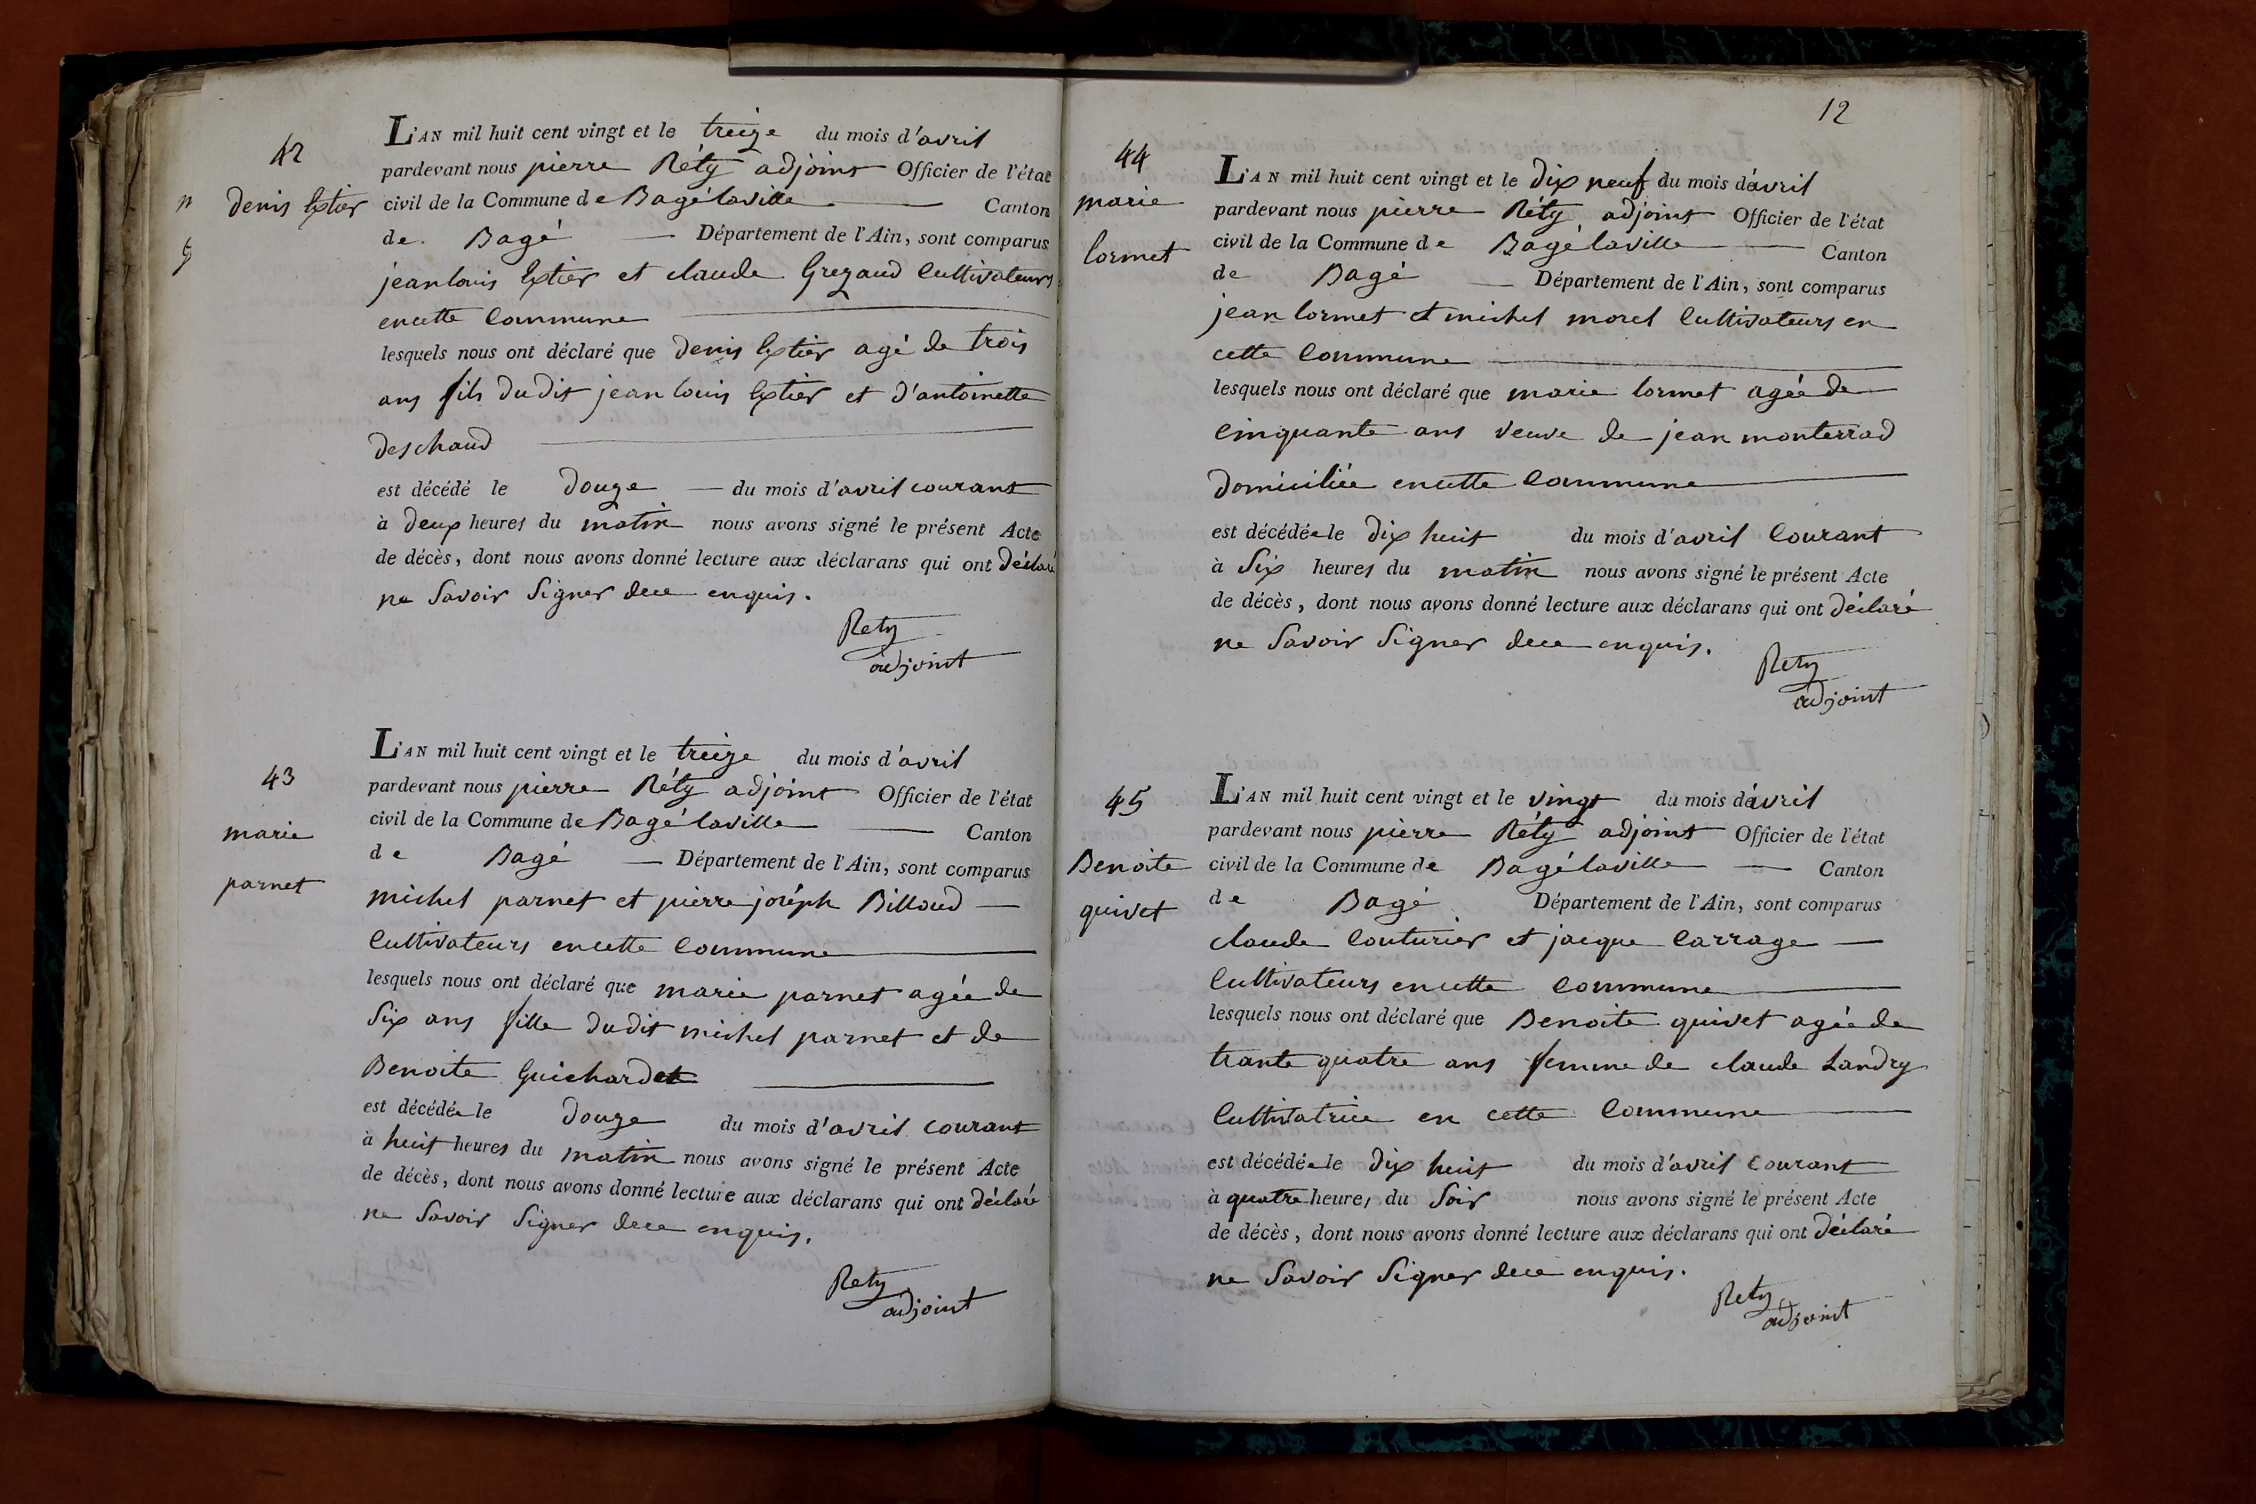 42
denis Extier
L'AN mil huit cent vingt et le treize du mois d'avril
pardevant nous pierre Réty adjoint Officier de l'état
civil de la Commune de Bagélaville Canton
de Bagé Département de l'Ain, sont comparus
jean louis Extier et claude Grezaud Cultivateurs
en cette Commune
lesquels nous ont déclaré que denis Extier agé de trois
ans fils dudit jean louis Extier et d'antoinette
deschaud
est décédé le douze du mois d'avril courant
à deux heures du matin nous avons signé le présent Acte
de décès, dont nous avons donné lecture aux déclarans qui ont déclaré
ne Savoir Signer de ce enquis.
Rety
adjoint
43
marie
parnet
L'AN mil huit cent vingt et le treize du mois d'avril
pardevant nous pierre Réty adjoint Officier de l'état
civil de la Commune de Bagélaville Canton
de Bagé Département de l'Ain, sont comparus
michel parnet et pierre joséph Billoud
Cultivateurs en cette Commune
lesquels nous ont déclaré que marie parnet agée de
Six ans fille dudit michel parnet et de
Benoite Guichardet
est décédée le douze du mois d'avril courant
à huit heures du matin nous avons signé le présent Acte
de décès, dont nous avons donné lecture aux déclarans qui ont déclaré
ne Savoir Signer de ce enquis.
Rety
adjoint
12
44
marie
lormet
L'AN mil huit cent vingt et le dix neuf du mois d'avril
pardevant nous pierre Réty adjoint Officier de l'état
civil de la Commune de Bagélaville Canton
de Bagé Département de l'Ain, sont comparus
jean lormet et michel morel Cultivateurs en
cette Commune
lesquels nous ont déclaré que marie lormet agée de
Cinquante ans veuve de jean monterrad
domiciliée en cette Commune
est décédée le dix huit du mois d'avril Courant
à Six heures du matin nous avons signé le présent Acte
de décès, dont nous avons donné lecture aux déclarans qui ont déclaré
ne Savoir Signer de ce enquis.
Rety
adjoint
45
Benoite
quivet
L'AN mil huit cent vingt et le vingt du mois d'avril
pardevant nous pierre Réty adjoint Officier de l'état
civil de la Commune de Bagélaville Canton
de Bagé Département de l'Ain, sont comparus
claude Couturier et jacque Carrage
Cultivateurs en cette Commune
lesquels nous ont déclaré que Benoite quivet agée de
trante quatre ans femme de claude Landry
Cultivatrice en cette Commune
est décédée le dix huit du mois d'avril Courant
à quatre heures du Soir nous avons signé le présent Acte
de décès, dont nous avons donné lecture aux déclarans qui ont déclaré
ne Savoir Signer de ce enquis.
Rety
adjoint